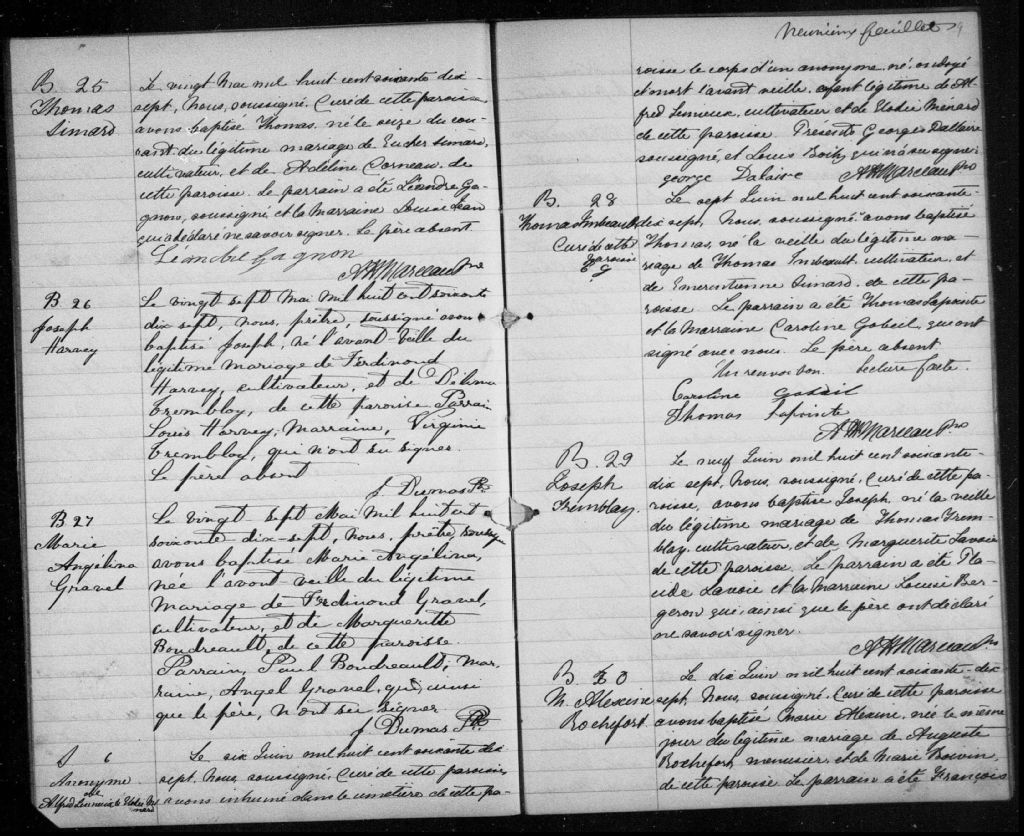 B. 25
Thomas
Simard
Le vingt Mai mil huit cent soixante dix-
sept, Nous, soussigné, Curé de cette paroisse
avons baptisé Thomas, né le seize du cou-
rant du légitime mariage de Eucher Simard,
cultivateur, et de Adeline Corneau, de
cette paroisse. Le parrain a été Léandre Ga-
gnon, soussigné, et la Marraine Louise Jean
qui a déclaré ne savoir signer. Le père absent
Leandre Gagnon
B 26
Joseph
Harvey
Le vingt sept Mai Mil huit cent soixante
dix sept, nous, prêtre, soussigné avons
baptisé Joseph, né l'avant veille du
légitime mariage de Ferdinand
Harvey, cultivateur, et de Délima
Tremblay, de cette paroisse Parrain
Louis Harvey, Marraine, Virginie
Tremblay, qui n'ont su signer.
Le père absent
J. Dumas Ptre
B 27
Marie
Angélina
Gravel
Le vingt sept Mai Mil huit cent
soixante dix-sept, Nous, prêtre, soussigné
avons baptisé Marie Angélina,
née l'avant veille du légitime
Mariage de Ferdinand Gravel,
cultivateur, et de Margueritte
Boudreault, de cette paroisse.
Parrain, Paul Boudreault, Mar-
raine, Angel Gravel, qui, ainsi
que le père, n'ont su signer
J. Dumas Ptre
S 6
Anonyme
de
Alfred Lemieux & Elodie Mé-
nard
Le six Juin mil huit cent soixante dix
sept, Nous, soussigné, Curé de cette paroisse
avons inhumé dans le cimetière de cette pa-
Neuvième feuillet 9
roisse le corps d'un anonyme, né, ondoyé
et mort l'avant veille, enfant légitime de Al-
fred Lemieux, cultivateur et de Elodie Ménard
de cette paroisse Présents Georges Dallaire
soussigné, et Louis Boily qui n'a su signer.
george Dalaire A H Marceau Ptre
B. 28
Thomas Imbeault
Curé de cette
paroisse
Le sept Juin mil huit cent soixante-
dix sept, Nous, soussigné avons baptisé
Thomas, né la veille du légitime ma-
riage de Thomas Imbeault cultivateur, et
de Emerentienne Simard, de cette pa-
roisse. Le parrain a été Thomas Lapointe
et la Marraine Caroline Gobeil, qui ont
signé avec nous. Le père absent
Un renvoi bon. Lecture faite.
Caroline Gobeil
Thomas Lapointe
A H Marceau Ptre
B. 29
Joseph
Tremblay.
Le neuf Juin mil huit cent soixante-
dix sept, Nous, soussigné, Curé de cette pa-
roisse, avons baptisé Joseph, né la veille
du légitime mariage de Thomas Trem-
blay, cultivateur, et de Marguerite Lavoie
de cette paroisse. Le parrain a été Pla-
cide Lavoie et la Marraine Louise Ber-
geron qui, ainsi que le père ont déclaré
ne savoir signer.
A H Marceau Ptre
B. 30
M. Alexine
Rochefort
Le dix Juin mil huit cent soixante-dix-
sept, Nous, soussigné, Curé de cette paroisse
avons baptisé Marie Alexine, née le même
jour du légitime mariage de Auguste
Rochefort, menuisier et de Marie Boivin,
de cette paroisse Le parrain a été François